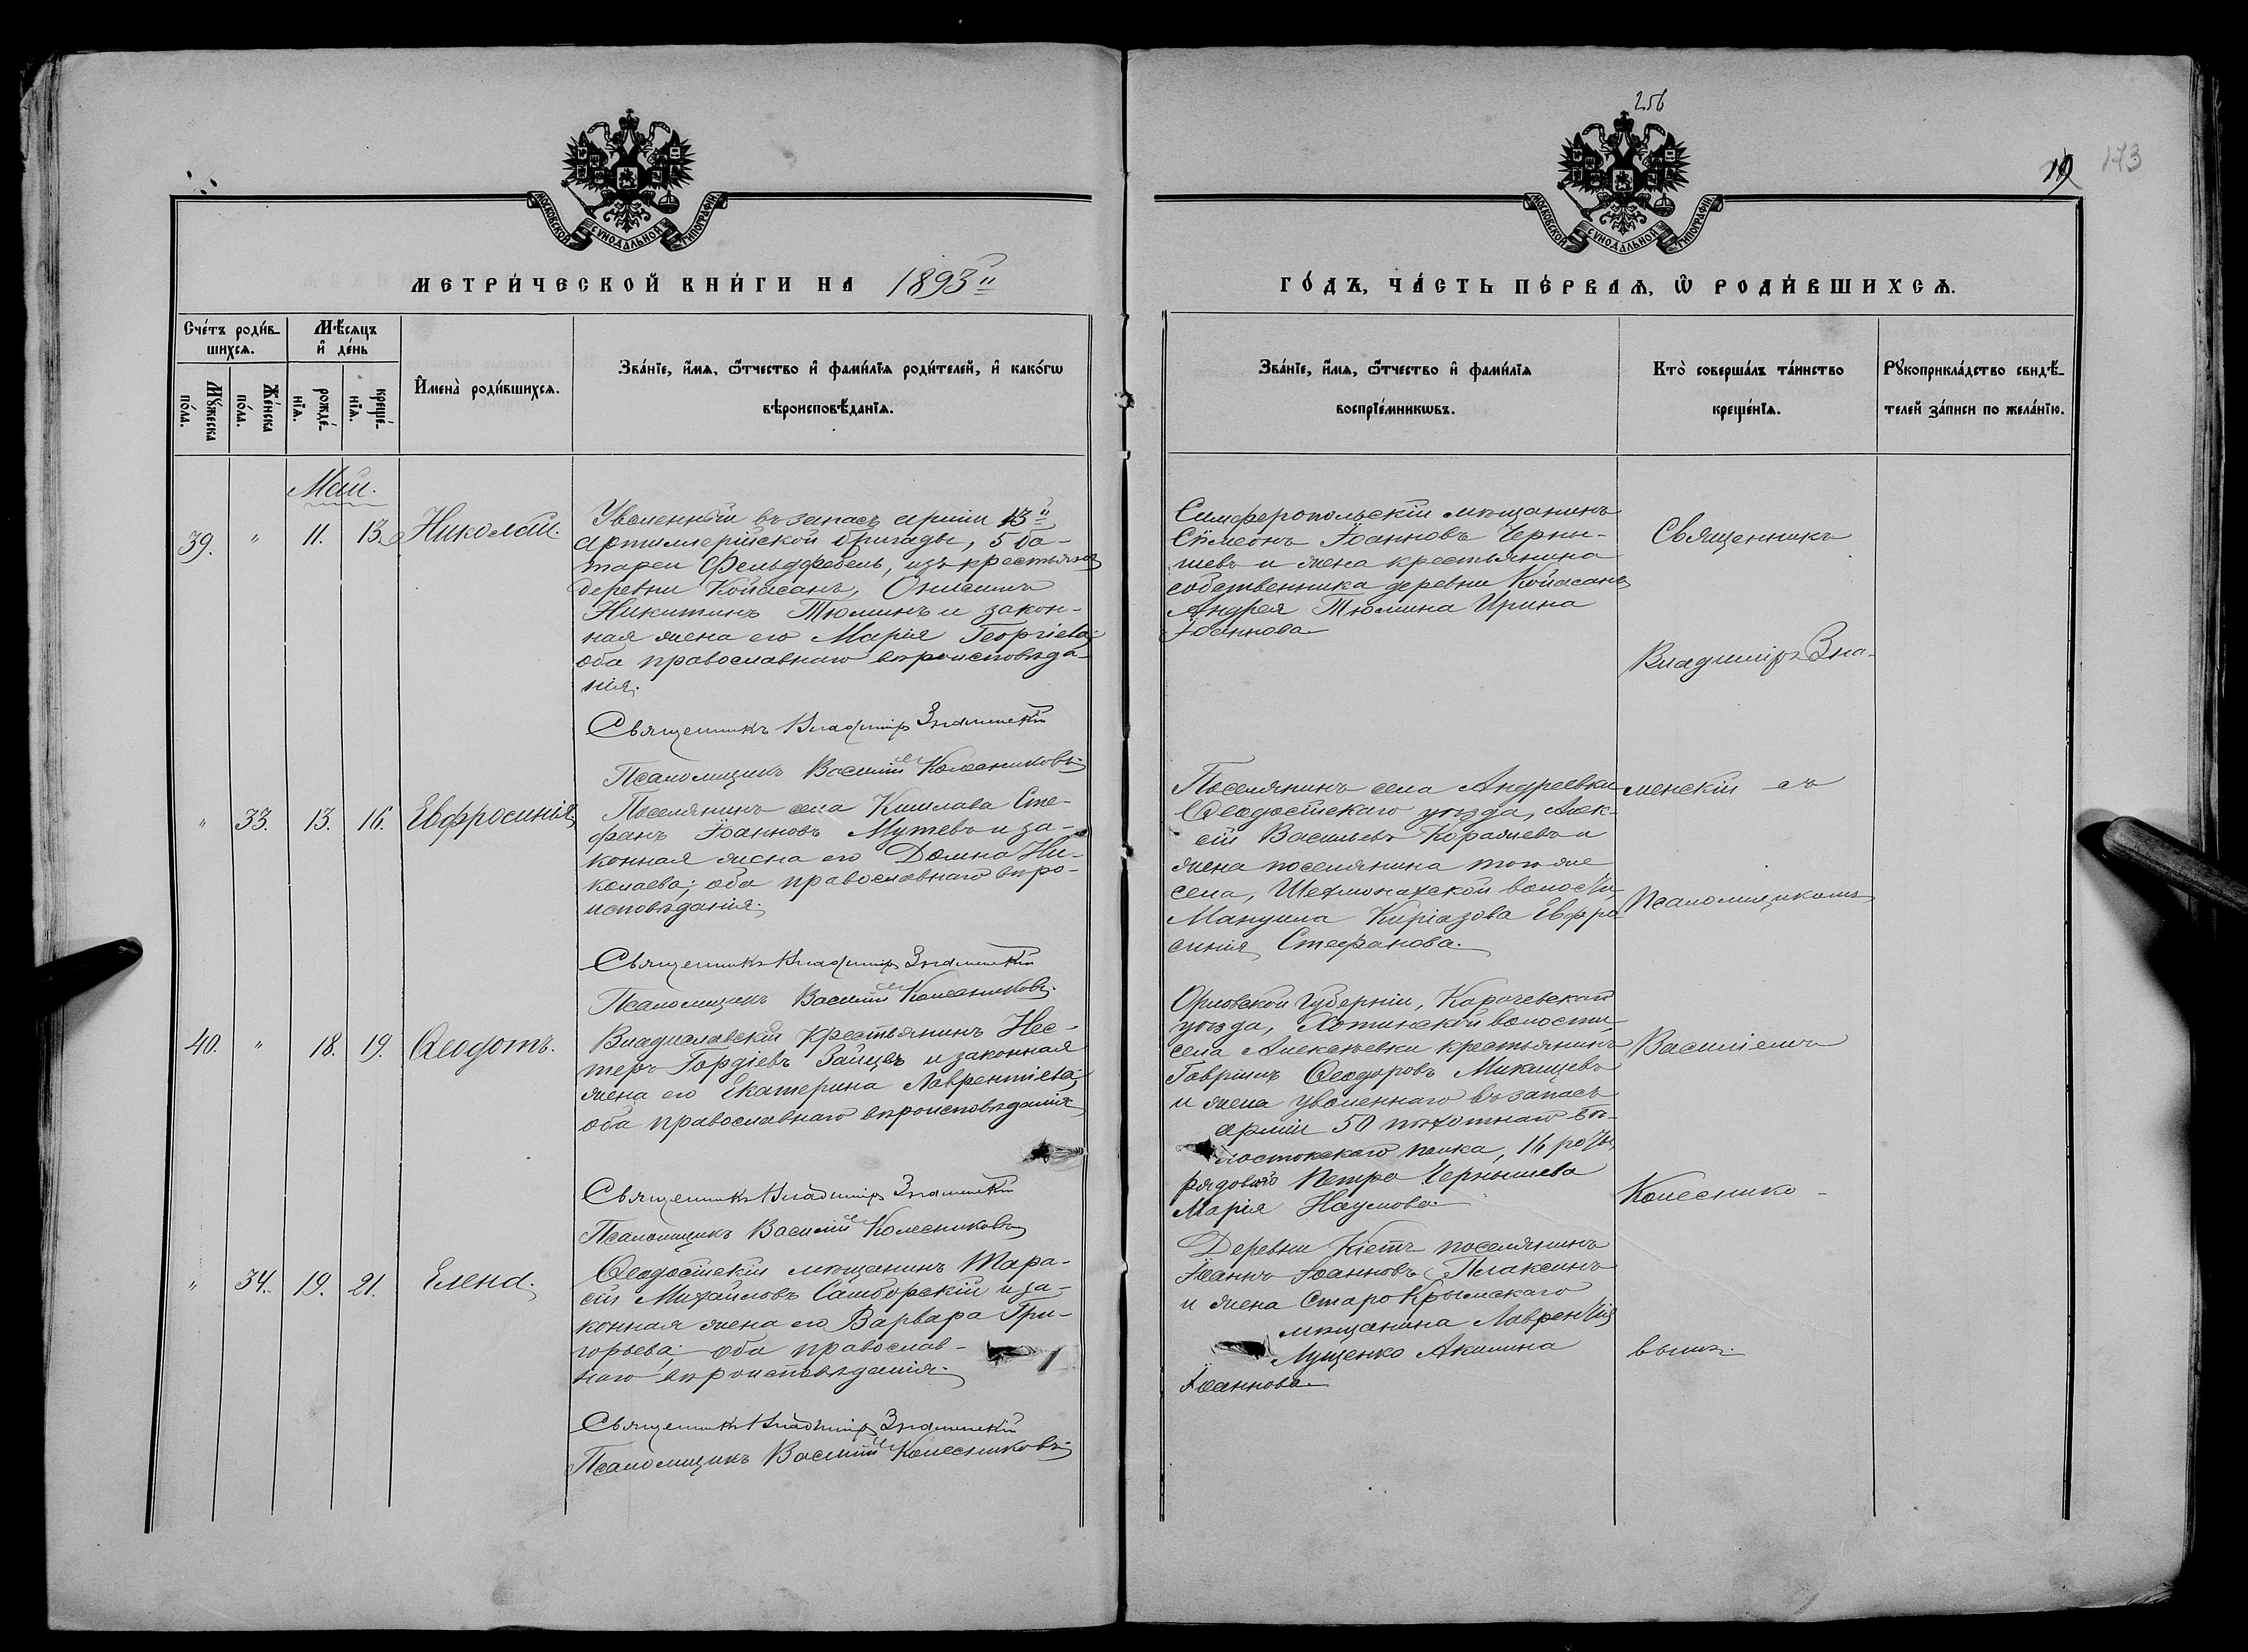 256
19
173
МОСКОВСКОЙ СѴНОДАЛЬНОЙ ТИПОГРАФІИ
МОСКОВСКОЙ СѴНОДАЛЬНОЙ ТИПОГРАФІИ
МЕТРИ́ЧЕСКОЙ КНИ́ГИ НА 1893й
ГО́ДЪ, ЧА́СТЬ ПЕ́РВАѦ, Ѿ РОДИ́ВШИХСѦ.
Сче́тъ роди́в-
шихсѧ.
Мꙋ́жеска
по́ла.
Же́нска
по́ла.
Мѣ́сѧцъ
и҆ де́нь
рожде́-
нїѧ.
креще́-
нїѧ.
И҆мена̀ роди́вшихсѧ.
Зва́нїе, и҆́мѧ, ѻ҆́тчество и҆ фами́лїѧ роди́телей, и҆ како́гѡ
вѣроисповѣ́данїѧ.
Зва́нїе, и҆́мѧ, ѻ҆́тчество и҆ фами́лїѧ
воспрїе́мникѡвъ.
Кто̀ соверша́лъ та́инство
креще́нїѧ.
Рꙋкоприкла́дство свидѣ́-
телей за́писи по жела́нїю.
Май.
39. " 11. 13. Николай.
Уволенный въ запасъ арміи 13й
артиллерійской бригады, 5 ба-
тареи Фельдфебель, изъ крестьянъ
деревни Койасанъ, Онисимъ
Никитинъ Тюминъ и закон-
ная жена его Марія Георгіева;
оба православнаго вѣроисповѣда-
нія.
Священникъ Владиміръ Знаменскій
Псаломщикъ Василій Колесниковъ
Симферопольскій мѣщанинъ
Сѵмеонъ Іоанновъ Черны-
шевъ и жена крестьянина
собственника деревни Койасанъ
Андрея Тюмина Ирина
Іоаннова
Священникъ
Владиміръ Зна-
" 33. 13. 16. Евфросинія
Поселянинъ села Кишлава Сте-
фанъ Іоанновъ Мутевъ и за-
конная жена его Домна Ни-
колаева; оба православнаго вѣро-
исповѣданія.
Священникъ Владиміръ Знаменскій
Псаломщикъ Василій Колесниковъ.
Поселянинъ села Андреевки
Ѳеодосійскаго уѣзда, Алек-
сій Васильевъ Коралиевъ и
жена поселянина того же
села, Шейхмонахской волости,
Мануила Киріазова Евфро
синія Стефанова.
менскій съ
Псаломщикомъ
40. " 18. 19. Ѳеодотъ.
Владиславскій крестьянинъ Нес-
теръ Гордіевъ Зайцевъ и законная
жена его Екатерина Лаврентіева;
оба православнаго вѣроисповѣданія
Священникъ Владиміръ Знаменскій
Псаломщикъ Василій Колесниковъ
Орловской губерніи, Карачевскаго
уѣзда, Хотинской волости,
села Алексѣевки крестьянинъ
Гавріилъ Ѳеодоровъ Микищевъ
и жена уволеннаго въ запасъ
арміи 50 пѣхотнаго Бѣ-
лостокскаго полка, 16 роты,
рядового Петра Чернышева
Марія Наумова.
Василіемъ
Колеснико-
" 34. 19. 21. Елена.
Ѳеодосійскій мѣщанинъ Тара-
сій Михаиловъ Самборскій и за-
конная жена его Варвара Гри-
горьева; оба православ-
наго вѣроисповѣданія.
Священникъ Владиміръ Знаменскій
Псаломщикъ Василій Колесниковъ
Деревни Кіетъ поселянинъ
Іоаннъ Іоанновъ Плаксинъ
и жена СтароКрымскаго
мѣщанина Лаврентія
Лущенко Акилина
Іоаннова.
вымъ.